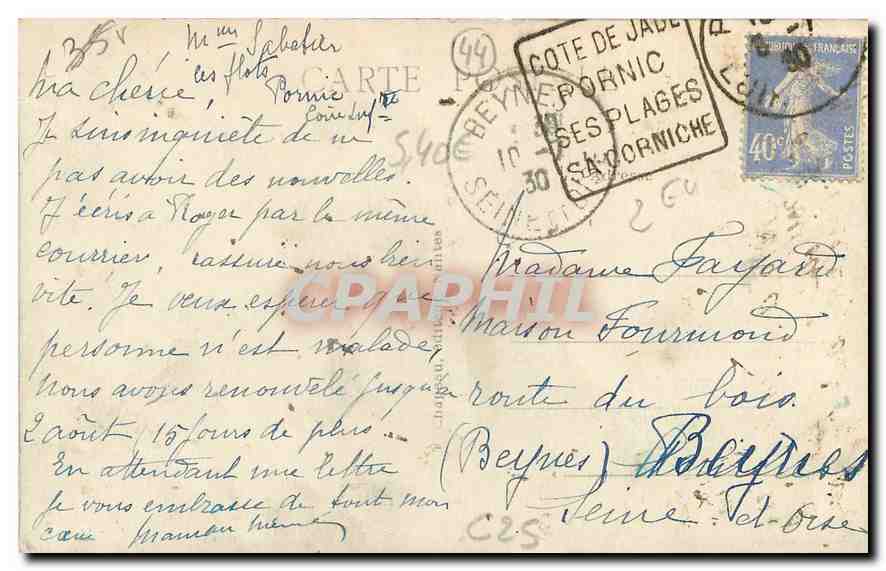 Mme Sabatier
les flots
Pornic
Loire Infre
44
CARTE POSTALE
Ma chérie,
Je suis inquiète de ne
pas avoir des nouvelles.
J'écris à Roger par le même
courrier, rassure nous bien
vite. Je veux espérer que
personne n'est malade,
Nous avons renouvelé jusqu'a
2 août, 15 jours de plus
En attendant une lettre
je vous embrasse de tout mon
cœur Maman
COTE DE JADE
PORNIC
SES PLAGES
SA CORNICHE
BEYNES
10
30
SEINE ET OISE
FRANÇAISE
40c
POSTES
5,40
2 EU
Chapeau, éditeur, Nantes
CPAPHIL
Madame Fayard
Maison Fourmond
route du bois
(Beynes) Beynes
Seine-d-Oise
C25